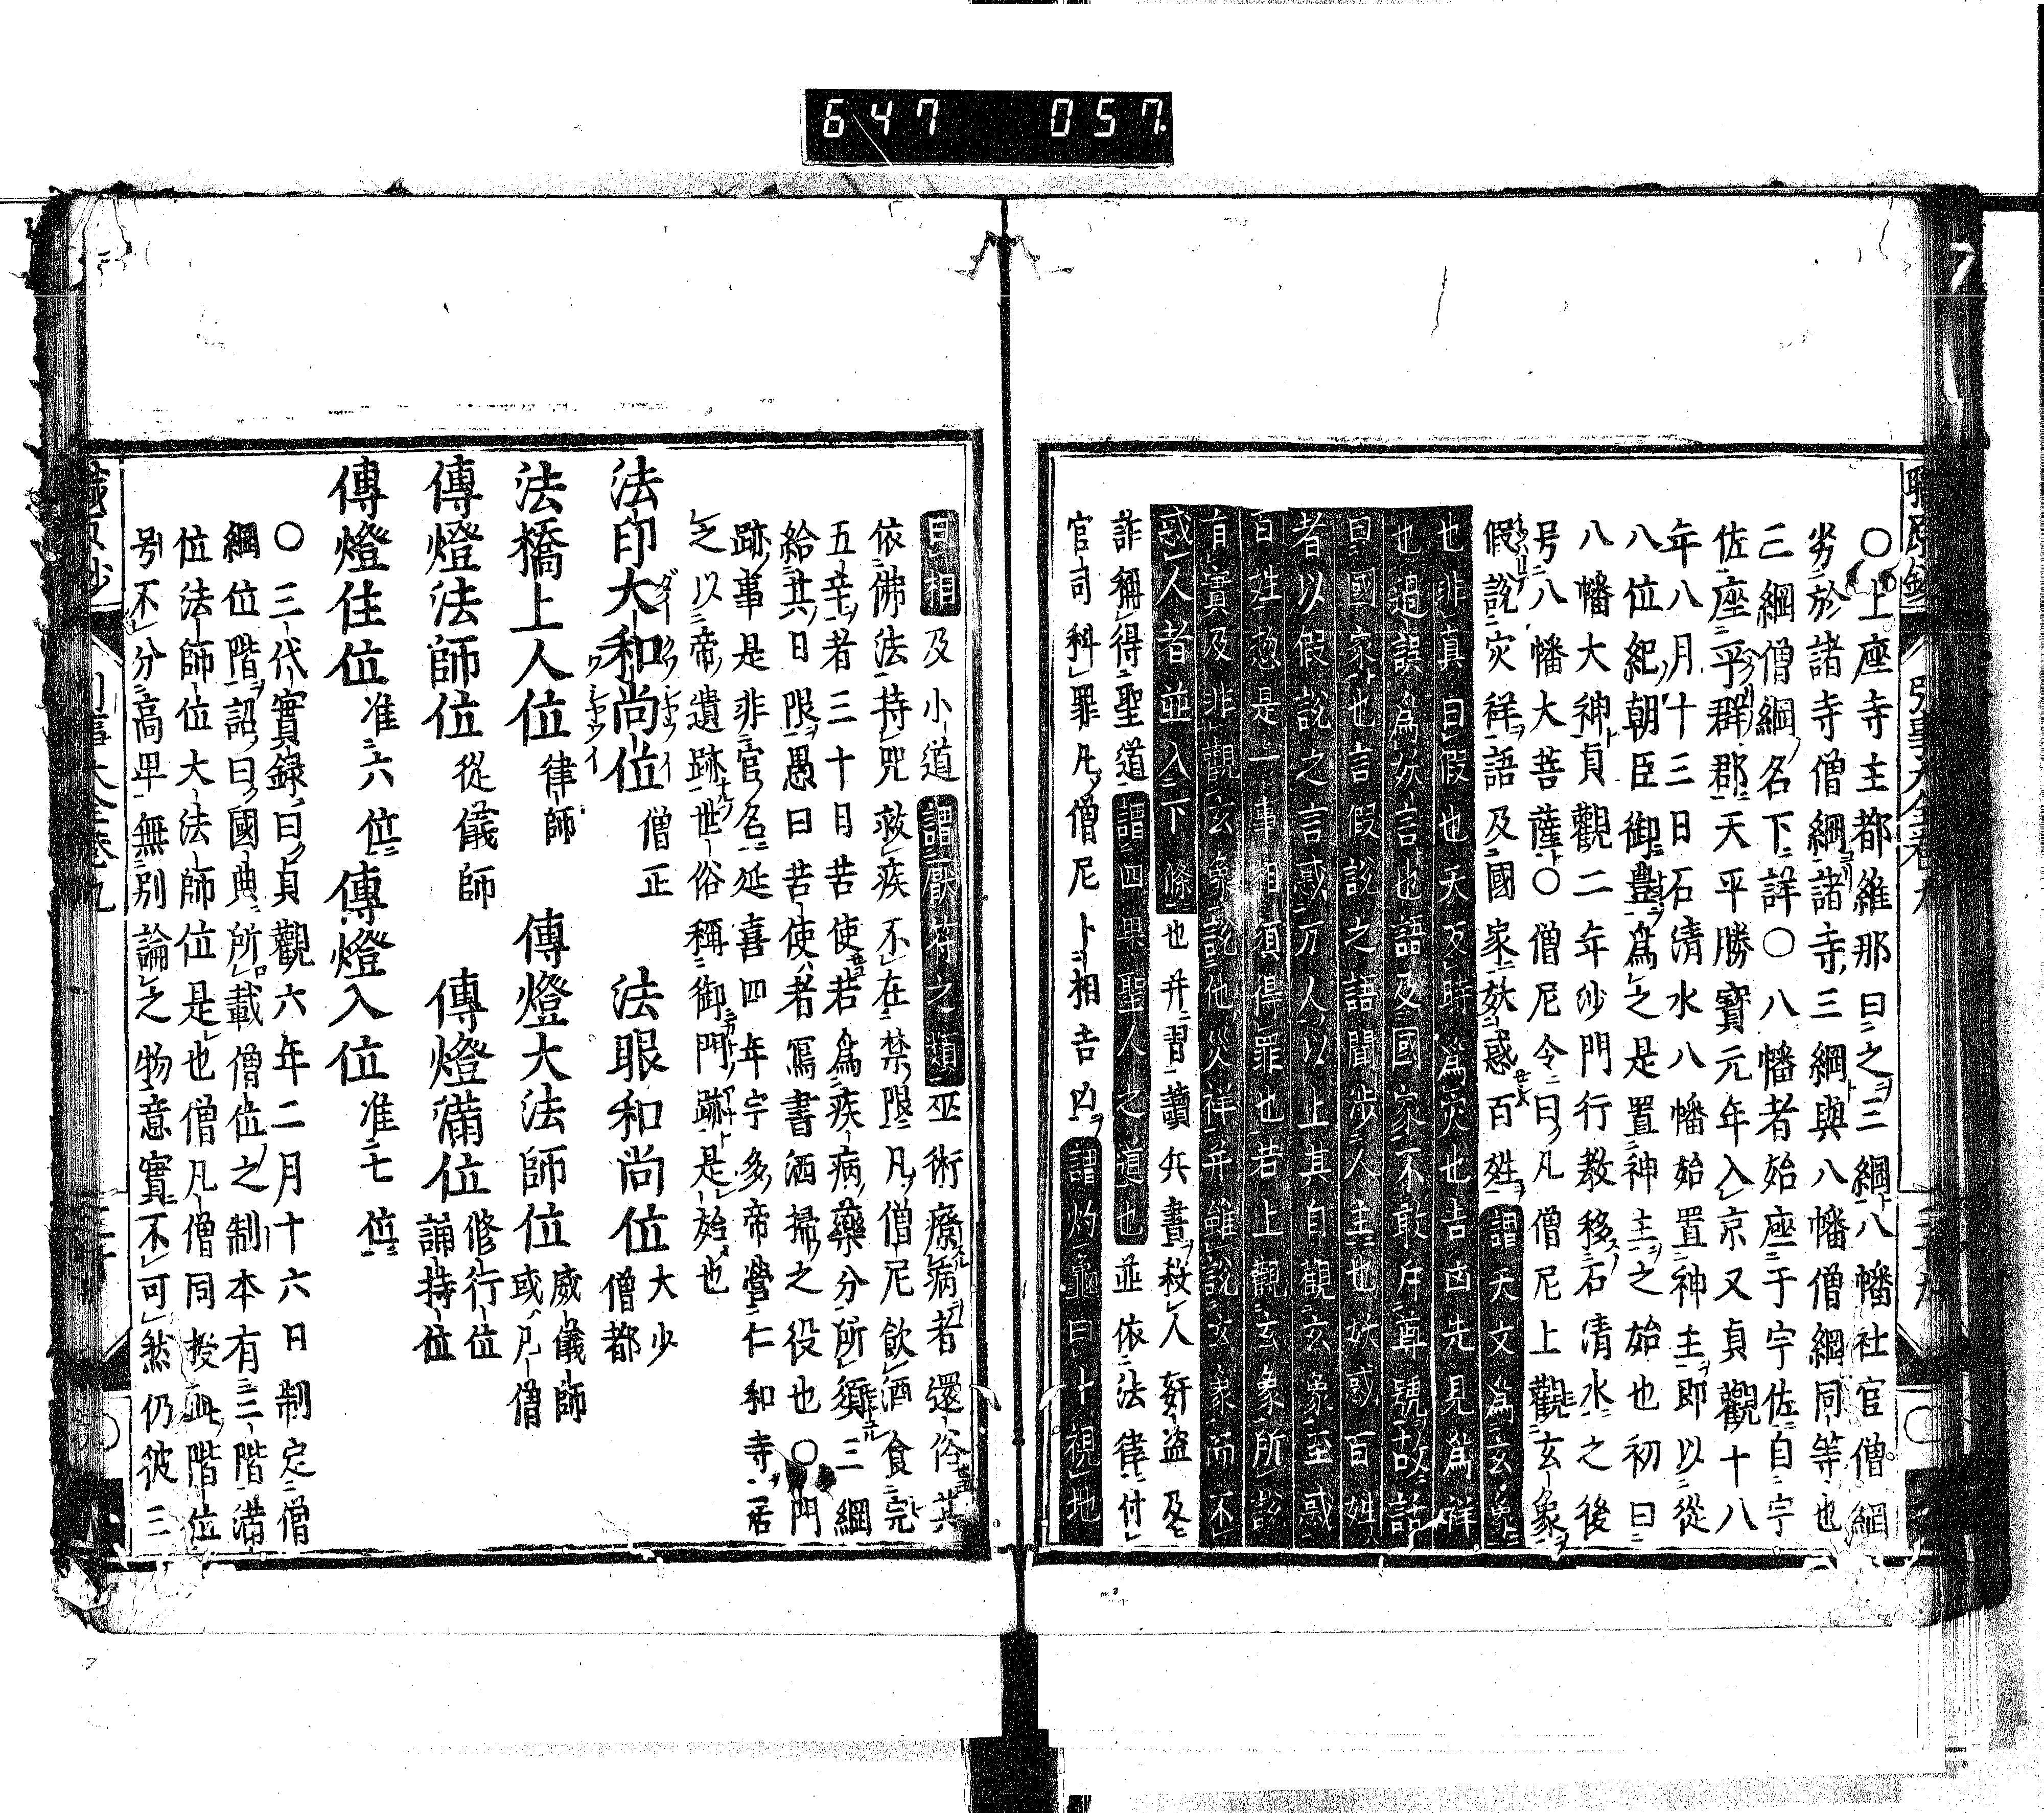 647 057
〇上座寺主都維那曰之三綱八幡社官僧綱
劣於諸寺僧綱諸寺三綱與八幡僧綱同等也
三綱僧綱名下詳〇八幡者始座于宇佐自宇
佐座平群郡天平勝寳元年入京又貞觀十八
年八月十三日石清水八幡始置神主即以從
八位紀朝臣御豊爲之是置神主之始也初曰
八幡大神貞觀二年沙門行教移石清水之後
号八幡大菩薩〇僧尼令曰凡僧尼上觀玄象
假說灾祥語及國家妖惑百姓謂天文爲玄象
也非真曰假也天反時爲灾也吉凶先見爲祥
也過誤爲妖言也語及國家不敢斥尊號故託
曰國家也言假說之語關涉人主也妖惑百姓
者以假說之言惑万人以上其自觀玄象至惑
百姓惣是一事相須得罪也若上觀玄象所說
有實及非觀玄象說他災祥并雖說玄象而不
惑人者並入下條也并習讀兵書殺人姧盗及
詐稱得聖道謂四果聖人之道也並依法律付
官司科罪凡僧尼卜相吉凶謂灼龜曰卜視地
曰相及小道謂厭符之類巫術療病者還俗其
依佛法持咒救疾不在禁限凡僧尼飲酒食完
五辛者三十日苦使若爲疾病藥分所須三綱
給其日限愚曰苦使者寫書洒掃之役也〇門
跡事是非官名延喜四年宇多帝營仁和寺居
之以帝遺跡世俗稱御門跡是始也
法印大和尚位 僧正 法眼和尚位 大少僧都
法橋上人位 律師 傳燈大法師位 威儀師或凡僧
傳燈法師位 從儀師 傳燈滿位 修行位誦持位
傳燈住位 准六位 傳燈入位 准七位
〇三代實録曰貞觀六年二月十六日制定僧
綱位階詔曰國典所載僧位之制本有三階滿
位法師位大法師位是也僧凡僧同授此階位
号不分高卑無別論之物意實不可然仍彼三